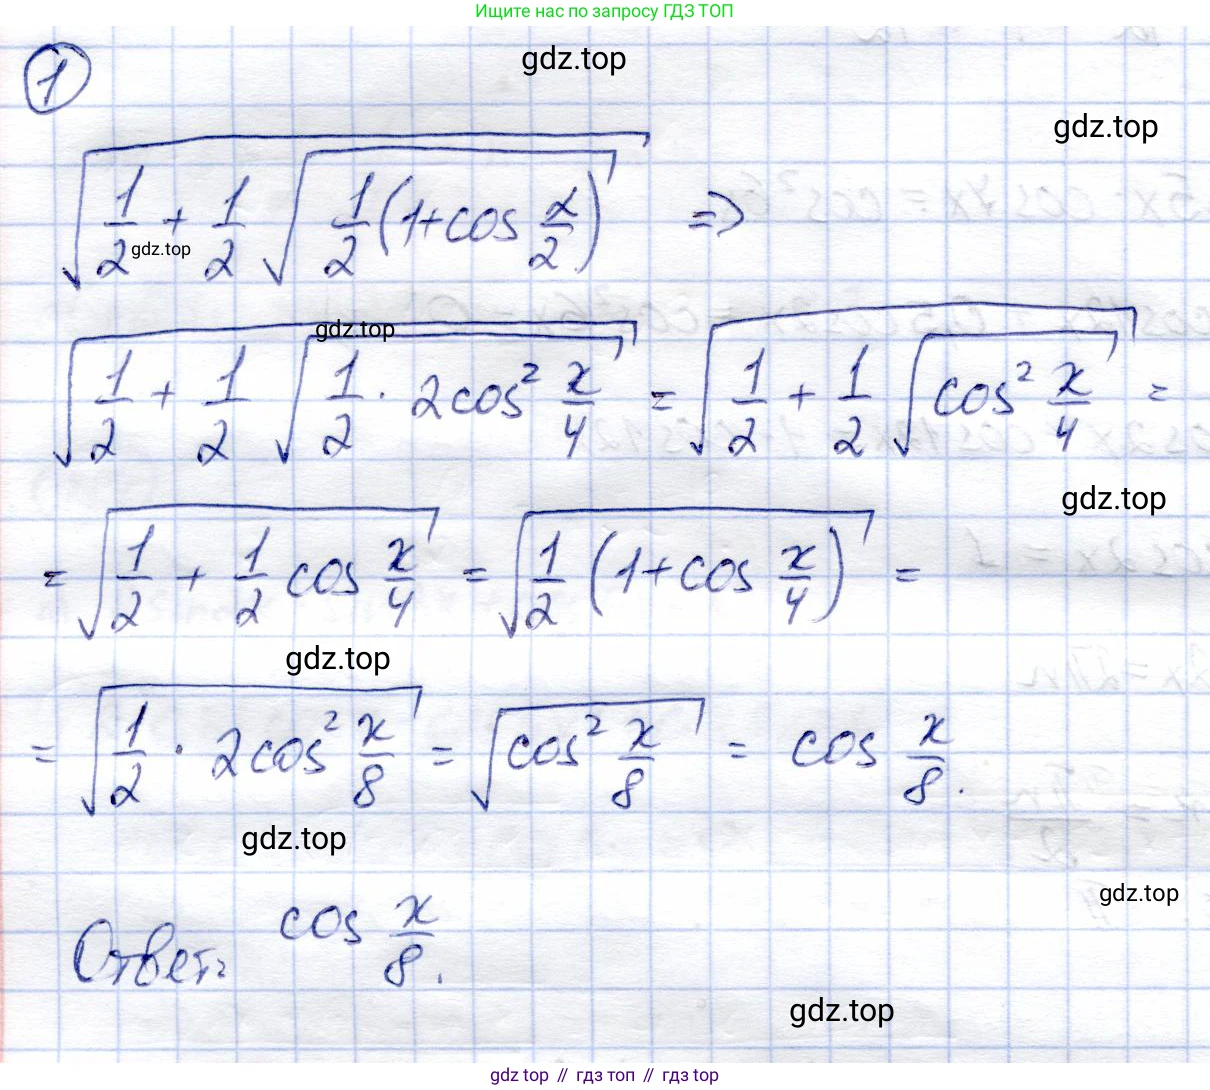 Ищите нас по запросу ГДЗ ТОП
gdz.top
1
gdz.top
√(1/2 + 1/2 √(1/2 (1+cos α/2))) =>
gdz.top
gdz.top
√(1/2 + 1/2 √(1/2 · 2cos² x/4)) = √(1/2 + 1/2 √(cos² x/4)) =
gdz.top
= √(1/2 + 1/2 cos x/4) = √(1/2 (1+cos x/4)) =
gdz.top
= √(1/2 · 2cos² x/8) = √(cos² x/8) = cos x/8.
gdz.top
gdz.top
Ответ: cos x/8.
gdz.top
gdz.top // гдз топ // гдз.top